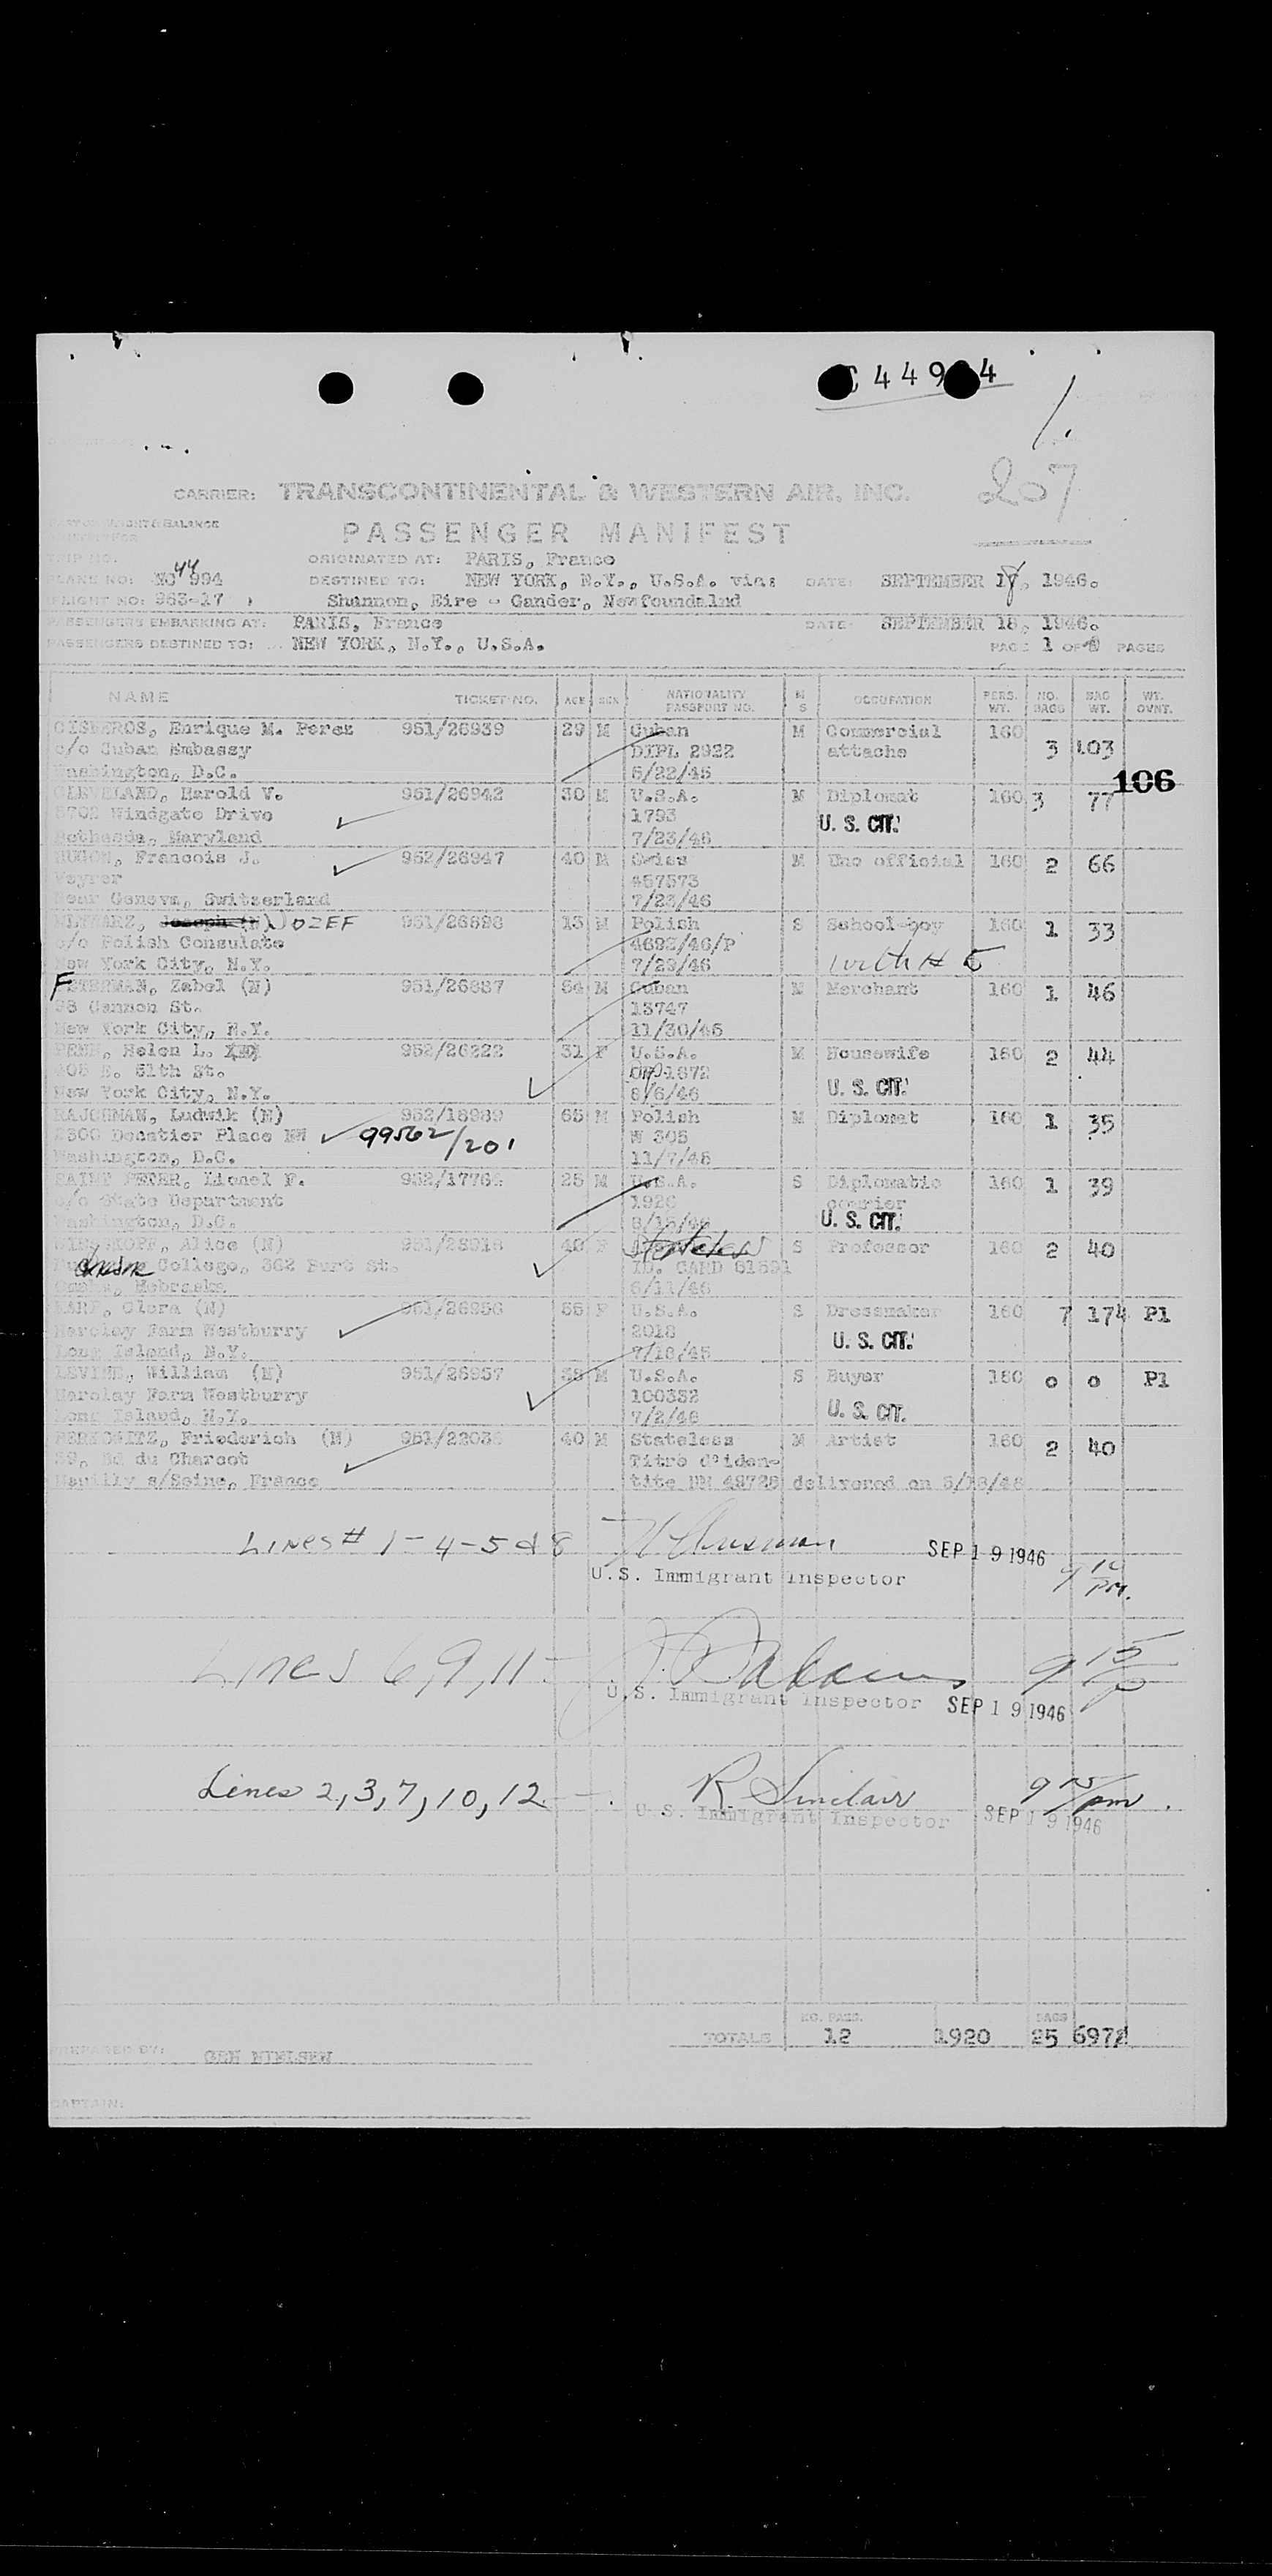 C 449 4
1.
207
CARRIER: TRANSCONTINENTAL & WESTERN AIR, INC.
PASSENGER MANIFEST
TRIP NO. ORIGINATED AT: PARIS, France
PLANE NO: NC 44 994 DESTINED TO: NEW YORK, N.Y., U.S.A. via: DATE: SEPTEMBER 18, 1946.
FLIGHT NO: 963-17 Shannon, Eire - Gander, Newfoundalnd
PASSENGERS EMBARKING AT: PARIS, France DATE: SEPTEMBER 18, 1946.
PASSENGERS DESTINED TO: NEW YORK, N.Y., U.S.A. PAGE 1 OF PAGES
NAME TICKET NO. AGE SEX NATIONALITY PASSPORT NO. M S OCCUPATION PERS. WT. NO. BAGS BAG WT. WT. OVNT.
CISNEROS, Enrique M. Perez 951/26939 29 M Cuban M Commercial 160
c/o Cuban Embassy DIPL 2922 attache 3 103
Washington, D.C. 6/22/45
106
CLEVELAND, Harold V. 951/26942 30 M U.S.A. M Diplomat 160 3 77
Windgate Drive 1793 U. S. CIT.
Bethesda, Maryland 7/23/46
HUGON, Francois J. 952/26947 40 M Swiss M Uno official 160 2 66
Veyrer 457573
Near Geneva, Switzerland 7/23/46
Joseph (N) JOZEF 951/26898 13 M Polish S School-boy 160 1 33
c/o Polish Consulate 4692/46/P with # 5
New York City, N.Y. 7/29/46
FETERMAN, Zabel (N) 951/26887 64 M Cuban M Merchant 160 1 46
98 Cannon St. 13747
New York City, N.Y. 11/30/45
PENN, Helen L. 952/26222 31 F U.S.A. M Housewife 160 2 44
405 E. 51th St. 1672 U. S. CIT.
New York City, N.Y. 8/6/46
RAJCHMAN, Ludwik (N) 952/18989 65 M Polish M Diplomat 160 1 35
2300 Decatier Place NW 99562/201 W 305
Washington, D.C. 11/7/45
SAINT PETER, Lionel F. 952/1776 25 M U.S.A. S Diplomatic 160 1 39
c/o State Department 1926 courier
Washington, D.C. 8/15/46 U. S. CIT.
Alice (N) 951/28918 40 F Stateless S Professor 160 2 40
College, 302 Burt St. ID. CARD 61891
Omaha, Nebraska 6/11/46
KARP, Clara (N) 951/26956 55 F U.S.A. S Dressmaker 160 7 174 P1
Barclay Farm Westburry 2018 U. S. CIT.
Long Island, N.Y. 7/18/45
LEVINE, William (N) 951/26957 38 M U.S.A. S Buyer 160 0 0 P1
Barclay Farm Westburry 100332
Long Island, N.Y. 7/2/46 U. S. CIT.
BERKOWITZ, Friederich (N) 951/2203 40 M Stateless M Artist 160 2 40
39, Bd du Charcot Titre d'iden-
Neuilly s/Seine, France tite NN 48728 delivered on 5/
LINES # 1-4-5 & 8 SEP 19 1946 9 10 PM.
U.S. Immigrant Inspector
Lines 6, 9, 11 - 9 15 P
U.S. Immigrant Inspector SEP 19 1946
Lines 2, 3, 7, 10, 12 - R. Sinclair 9 15 pm.
U.S. Immigrant Inspector SEP 19 1946
NO. PASS. BAGS
TOTALS 12 1920 25 697
PREPARED BY:
CAPTAIN: